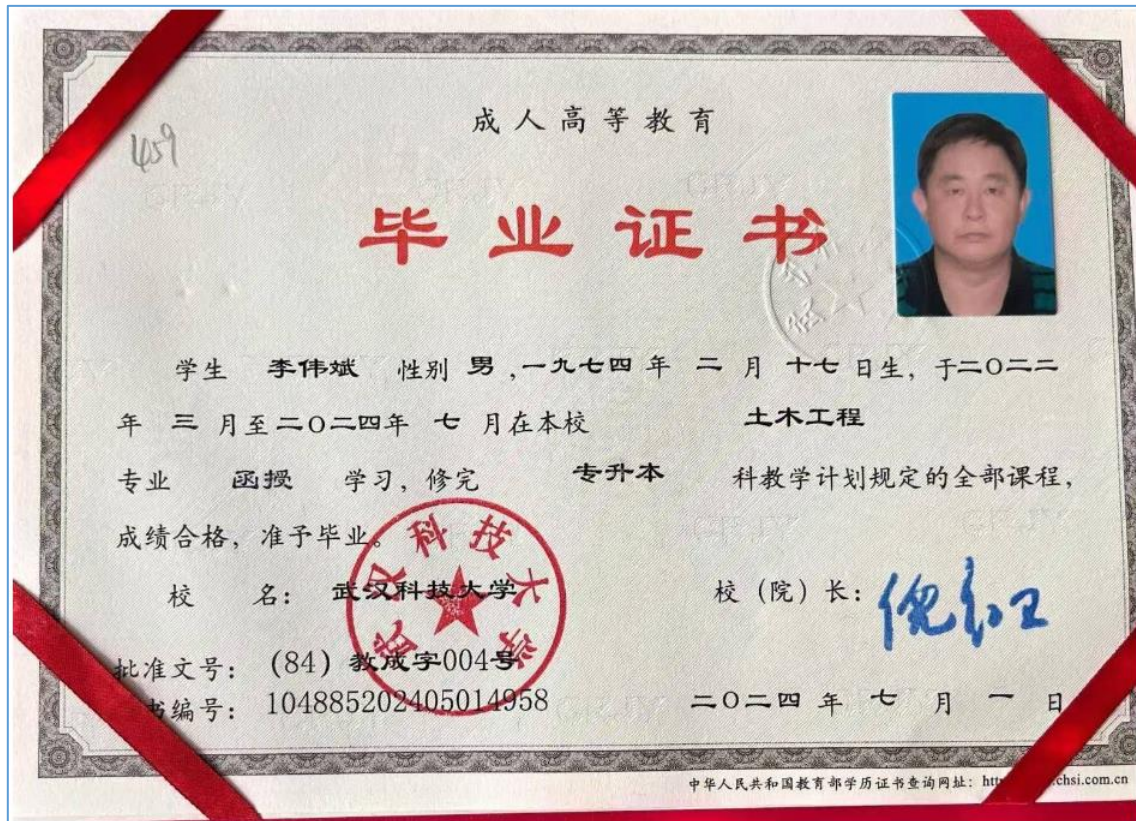 459
成人高等教育
毕业证书
学生 李伟斌 性别 男，一九七四 年 二 月 十七 日生，于二〇二二
年 三 月至二〇二四年 七 月在本校 土木工程
专业 函授 学习，修完 专升本 科教学计划规定的全部课程，
成绩合格，准予毕业。
校 名： 武汉科技大学
校（院）长： 倪红卫
武汉科技大学
批准文号： (84) 教成字004号
书编号： 104885202405014958
二〇二四 年 七 月 一 日
中华人民共和国教育部学历证书查询网址： chsi.com.cn